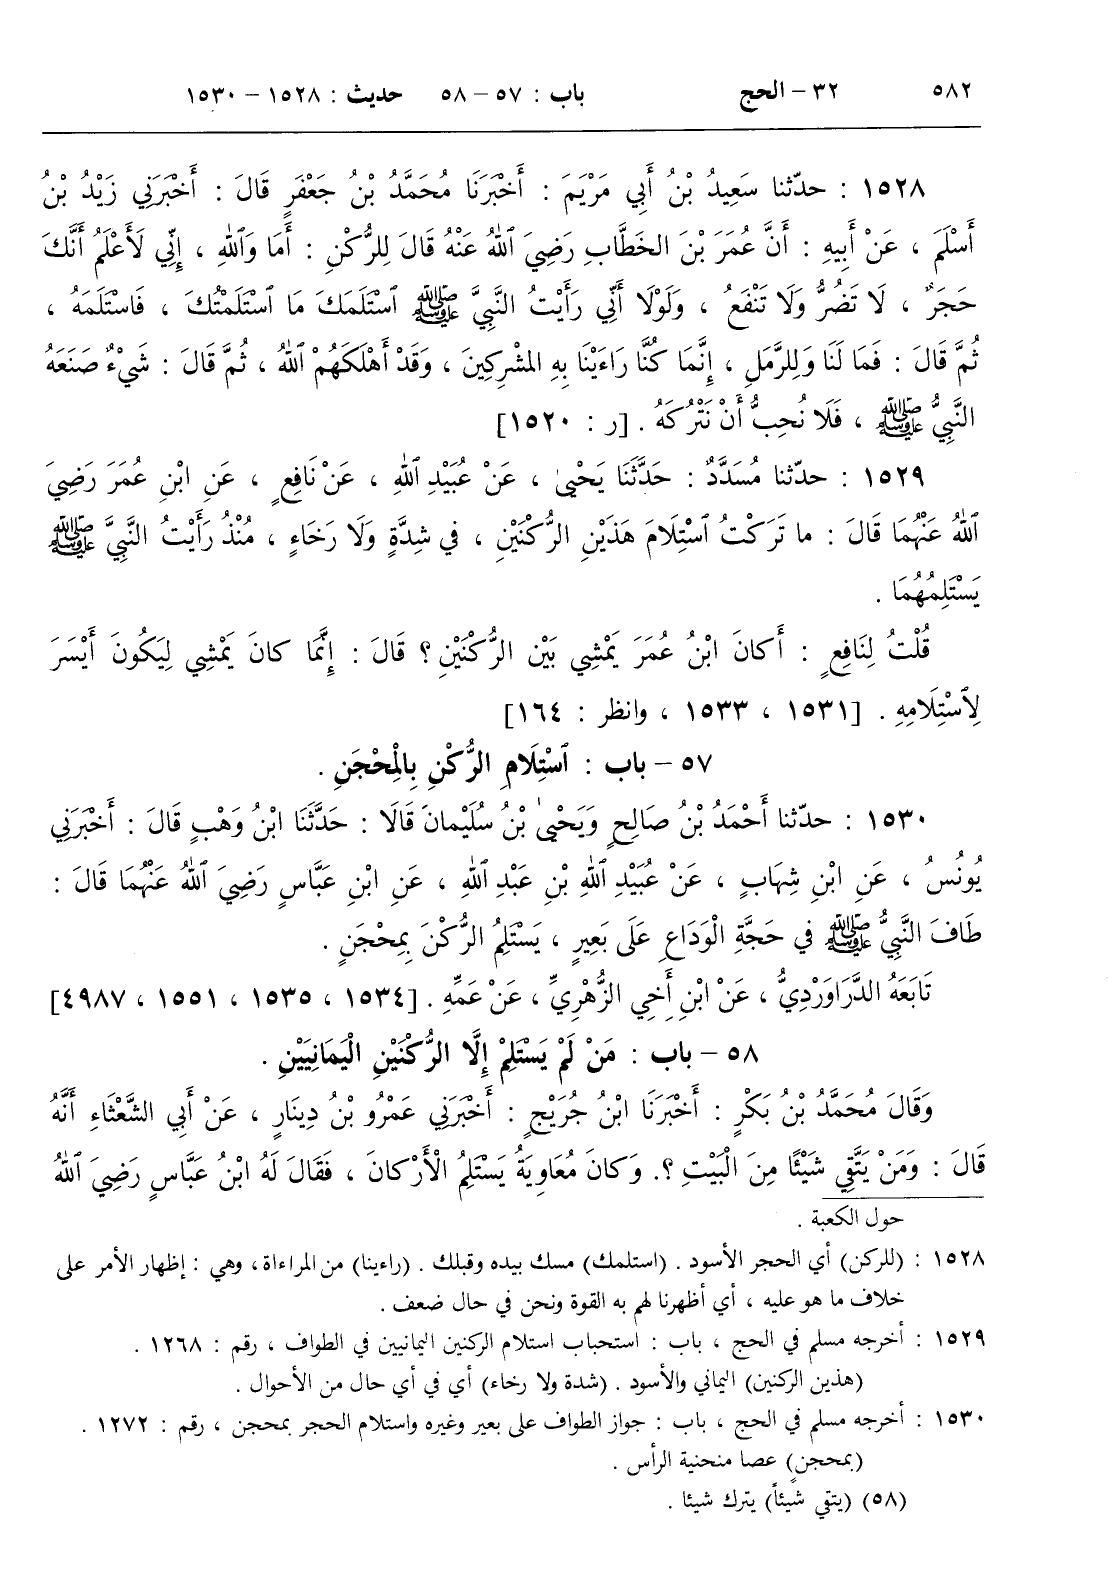 ٥٨٢ ٣٢ – الحج باب : ٥٧ – ٥٨ حديث : ١٥٢٨ – ١٥٣٠
١٥٢٨ : حدّثنا سَعِيدُ بْنُ أَبِي مَرْيَمَ : أَخْبَرَنَا مُحَمَّدُ بْنُ جَعْفَرٍ قَالَ : أَخْبَرَنِي زَيْدُ بْنُ
أَسْلَمَ ، عَنْ أَبِيهِ : أَنَّ عُمَرَ بْنَ الخَطَّابِ رَضِيَ ٱللهُ عَنْهُ قَالَ لِلرُّكْنِ : أَمَا وَٱللهِ ، إِنِّي لَأَعْلَمُ أَنَّكَ
حَجَرٌ ، لَا تَضُرُّ وَلَا تَنْفَعُ ، وَلَوْلَا أَنِّي رَأَيْتُ النَّبِيَّ ﷺ ٱسْتَلَمَكَ مَا ٱسْتَلَمْتُكَ ، فَاسْتَلَمَهُ ،
ثُمَّ قَالَ : فَمَا لَنَا وَلِلرَّمَلِ ، إِنَّمَا كُنَّا رَاءَيْنَا بِهِ المُشْرِكِينَ ، وَقَدْ أَهْلَكَهُمْ ٱللهُ ، ثُمَّ قَالَ : شَيْءٌ صَنَعَهُ
النَّبِيُّ ﷺ ، فَلَا نُحِبُّ أَنْ نَتْرُكَهُ . [ر : ١٥٢٠]
١٥٢٩ : حدّثنا مُسَدَّدٌ : حَدَّثَنَا يَحْيىٰ ، عَنْ عُبَيْدِ ٱللهِ ، عَنْ نَافِعٍ ، عَنِ ابْنِ عُمَرَ رَضِيَ
ٱللهُ عَنْهُمَا قَالَ : ما تَرَكْتُ ٱسْتِلَامَ هَذَيْنِ الرُّكْنَيْنِ ، في شِدَّةٍ وَلَا رَخَاءٍ ، مُنْذُ رَأَيْتُ النَّبِيَّ ﷺ
يَسْتَلِمُهُمَا .
قُلْتُ لِنَافِعٍ : أَكانَ ابْنُ عُمَرَ يَمْشِي بَيْنَ الرُّكْنَيْنِ ؟ قَالَ : إِنَّمَا كانَ يَمْشِي لِيَكُونَ أَيْسَرَ
لِٱسْتِلَامِهِ . [١٥٣١ ، ١٥٣٣ ، وانظر : ١٦٤]
٥٧ – باب : ٱسْتِلَامِ الرُّكْنِ بِالْمِحْجَنِ .
١٥٣٠ : حدّثنا أَحْمَدُ بْنُ صَالِحٍ وَيَحْيىٰ بْنُ سُلَيْمانَ قَالَا : حَدَّثَنَا ابْنُ وَهْبٍ قَالَ : أَخْبَرَنِي
يُونُسُ ، عَنِ ابْنِ شِهَابٍ ، عَنْ عُبَيْدِ ٱللهِ بْنِ عَبْدِ ٱللهِ ، عَنِ ابْنِ عَبَّاسٍ رَضِيَ ٱللهُ عَنْهُمَا قَالَ :
طَافَ النَّبِيُّ ﷺ في حَجَّةِ الْوَدَاعِ عَلَى بَعِيرٍ ، يَسْتَلِمُ الرُّكْنَ بِمِحْجَنٍ .
تَابَعَهُ الدَّرَاوَرْدِيُّ ، عَنْ ابْنِ أَخِي الزُّهْرِيِّ ، عَنْ عَمِّهِ . [١٥٣٤ ، ١٥٣٥ ، ١٥٥١ ، ٤٩٨٧]
٥٨ – باب : مَنْ لَمْ يَسْتَلِمْ إِلَّا الرُّكْنَيْنِ الْيَمَانِيَيْنِ .
وَقَالَ مُحَمَّدُ بْنُ بَكْرٍ : أَخْبَرَنَا ابْنُ جُرَيْجٍ : أَخْبَرَنِي عَمْرُو بْنُ دِينَارٍ ، عَنْ أَبِي الشَّعْثَاءِ أَنَّهُ
قَالَ : وَمَنْ يَتَّقِي شَيْئًا مِنَ الْبَيْتِ ؟. وَكانَ مُعَاوِيَةُ يَسْتَلِمُ الْأَرْكانَ ، فَقَالَ لَهُ ابْنُ عَبَّاسٍ رَضِيَ ٱللهُ
حول الكعبة .
١٥٢٨ : (للركن) أي الحجر الأسود . (استلمك) مسك بيده وقبلك . (راءينا) من المراءاة ، وهي : إظهار الأمر على
خلاف ما هو عليه ، أي أظهرنا لهم به القوة ونحن في حال ضعف .
١٥٢٩ : أخرجه مسلم في الحج ، باب : استحباب استلام الركنين اليمانيين في الطواف ، رقم : ١٢٦٨ .
(هذين الركنين) اليماني والأسود . (شدة ولا رخاء) أي في أي حال من الأحوال .
١٥٣٠ : أخرجه مسلم في الحج ، باب : جواز الطواف على بعير وغيره واستلام الحجر بمحجن ، رقم : ١٢٧٢ .
(بمحجنٍ) عصا منحنية الرأس .
(٥٨) (يتقي شيئاً) يترك شيئا .